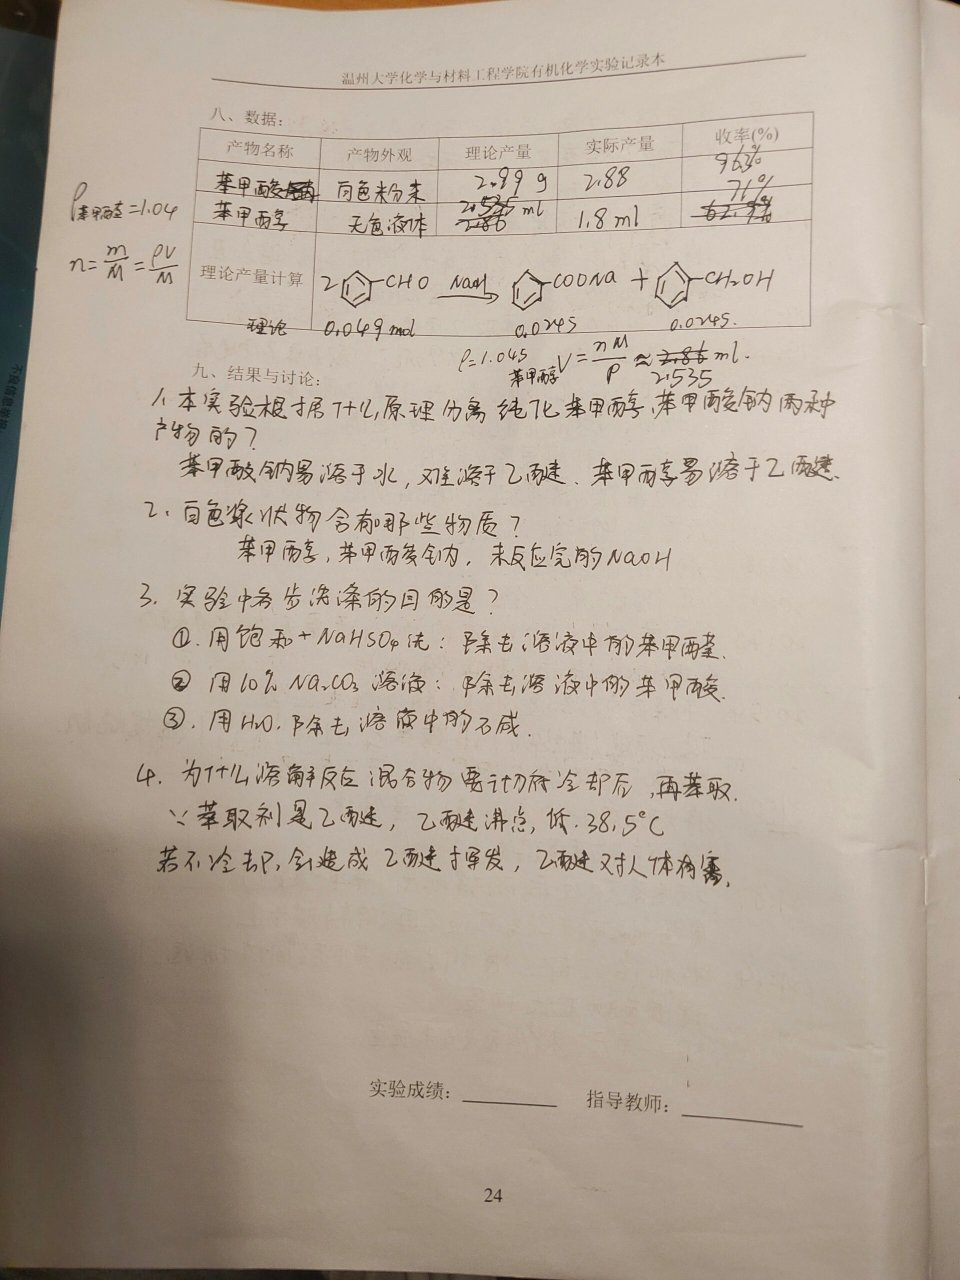 温州大学化学与材料工程学院有机化学实验记录本
八、数据：
产物名称 产物外观 理论产量 实际产量 收率(%)
苯甲酸 白色粉末 2.99 g 2.88 96.3%
苯甲醇 无色液体 2.535 ml 1.8 ml 71%
ρ苯甲醛=1.04
n=m/M=ρV/M
理论产量计算
2 CHO NaOH COONa + CH₂OH
理论 0.049 mol 0.0245 0.0245.
ρ=1.045 苯甲醇 V=nM/ρ≈2.535 ml.
九、结果与讨论：
1. 本实验根据什么原理分离纯化苯甲醇、苯甲酸钠两种
产物的？
苯甲酸钠易溶于水，难溶于乙醚、苯甲醇易溶于乙醚.
2. 白色浆状物含有哪些物质？
苯甲醇，苯甲酸钠，未反应完的NaOH
3. 实验中各步洗涤的目的是？
①. 用饱和 NaHSO₄洗：除去溶液中的苯甲醛.
② 用10% Na₂CO₃ 溶液：除去溶液中的苯甲酸.
③. 用H₂O. 除去溶液中的石咸.
4. 为什么溶解反应混合物要切底冷却后，再萃取.
∵ 萃取剂是乙醚，乙醚沸点，低. 38.5℃
若不冷却，会造成乙醚挥发，乙醚对人体有害.
实验成绩：
指导教师：
24